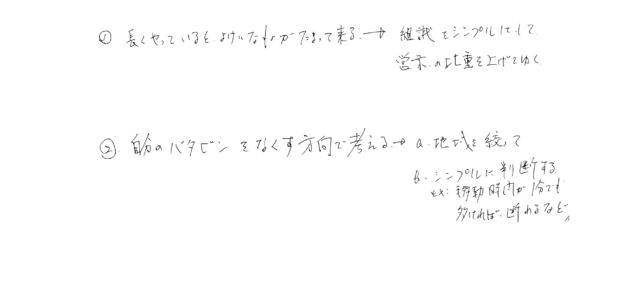 ① 長くやっていると、よけいなものがたまって来る → 組織をシンプルにして
営業の比重を上げてゆく
② 自分のバタビンをなくす方向で考える → a. 地域を絞って
b. シンプルに判断する
ex: 移動時間が1分でも
多ければ、断わるなど